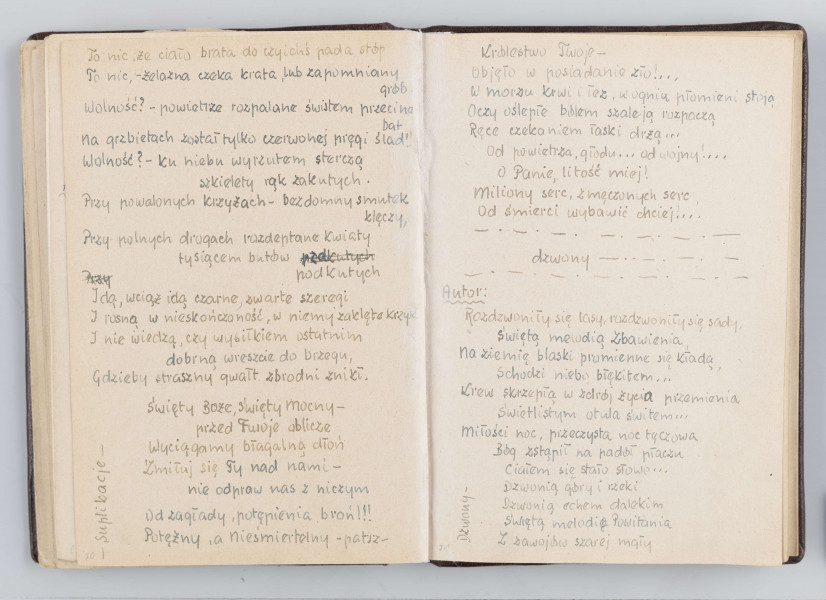 To nic, że ciało brata do czyichś pada stóp
To nic, – żelazna czeka krata, lub zapomniany
grób.
Wolność? – powietrze rozpalane świstem przecina
bat
Na grzbietach został tylko czerwonej pręgi ślad!
Wolność? – Ku niebu wyrzutem sterczą
szkielety rąk zakutych.
Przy powalonych krzyżach – bezdomny smutek
klęczy,
Przy polnych drogach rozdeptane kwiaty
tysiącem butów podkutych
Przy podkutych
Idą, wciąż idą czarne, zwarte szeregi
I rosną w nieskończoność, w niemy zaklęte krzyk
I nie wiedzą, czy wysiłkiem ostatnim
dobrną wreszcie do brzegu,
Gdzieby straszny gwałt zbrodni znikł.
Święty Boże, Święty Mocny –
przed Twoje oblicze
Wyciągamy błagalną dłoń
Zmiłuj się Ty nad nami –
nie odpraw nas z niczym
Od zagłady, potępienia broń!!!
Potężny, a Nieśmiertelny – patrz –
– Suplikacje –
Królestwo Twoje –
Objęło w posiadanie zło!...
W morzu krwi i łez, w ogniu, płomieni stoją
Oczy oślepłe bólem szaleją rozpaczą
Ręce czekaniem łaski drżą...
Od powietrza, głodu... od wojny!...
O Panie, litość miej!
Miliony serc, zmęczonych serc,
Od śmierci wybawić chciej!...
dzwony
Autor:
Rozdzwoniły się lasy, rozdzwoniły się sady,
Świętą melodią Zbawienia,
Na ziemię blaski promienne się kładą,
Schodzi niebo błękitem...
Krew skrzepłą w zdrój życia przemienia
Świetlistym otula świtem...
Miłości noc, przeczysta noc tęczowa
Bóg zstąpił na padół płaczu
Ciałem się stało słowo...
Dzwonią góry i rzeki
Dzwonią echem dalekim
Świętą melodię Powitania
Z zawojów szarej mgły
Dzwony –